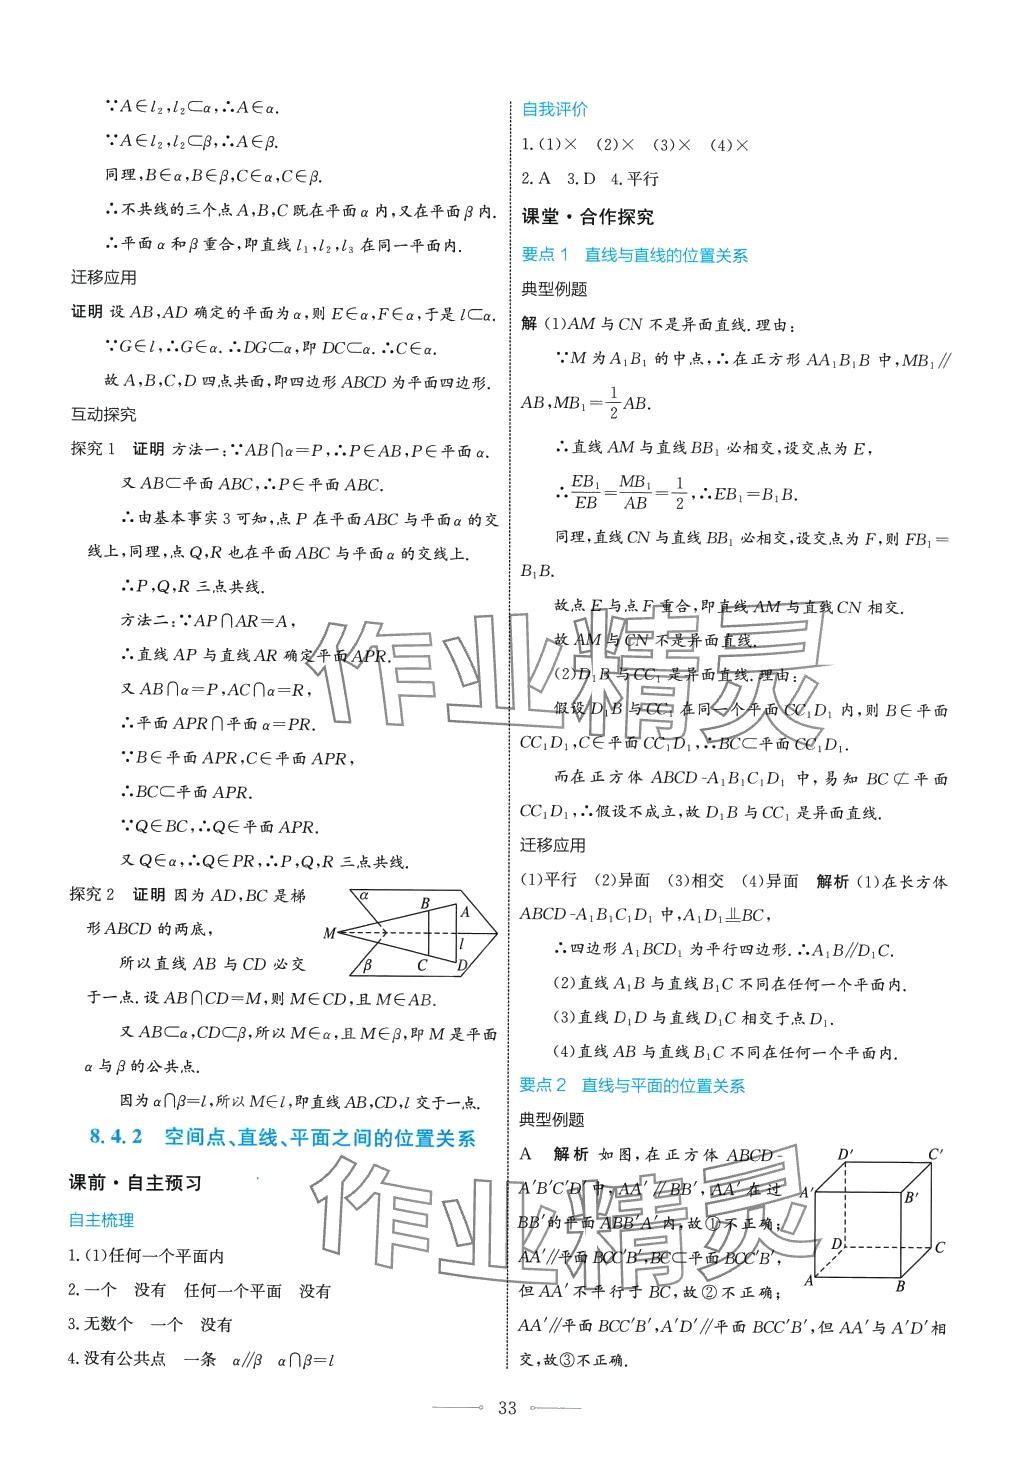 ∵A∈l₂,l₂⊂α,∴A∈α.
∵A∈l₂,l₂⊂β,∴A∈β.
同理,B∈α,B∈β,C∈α,C∈β.
∴不共线的三个点A,B,C既在平面α内,又在平面β内.
∴平面α和β重合,即直线l₁,l₂,l₃在同一平面内.
迁移应用
证明 设AB,AD确定的平面为α,则E∈α,F∈α,于是l⊂α.
∵G∈l,∴G∈α.∴DG⊂α,即DC⊂α.∴C∈α.
故A,B,C,D四点共面,即四边形ABCD为平面四边形.
互动探究
探究1 证明 方法一:∵AB∩α=P,∴P∈AB,P∈平面α.
又AB⊂平面ABC,∴P∈平面ABC.
∴由基本事实3可知,点P在平面ABC与平面α的交
线上,同理,点Q,R也在平面ABC与平面α的交线上.
∴P,Q,R三点共线.
方法二:∵AP∩AR=A,
∴直线AP与直线AR确定平面APR.
又AB∩α=P,AC∩α=R,
∴平面APR∩平面α=PR.
∵B∈平面APR,C∈平面APR,
∴BC⊂平面APR.
∵Q∈BC,∴Q∈平面APR.
又Q∈α,∴Q∈PR,∴P,Q,R三点共线.
探究2 证明 因为AD,BC是梯
形ABCD的两底,
所以直线AB与CD必交
于一点.设AB∩CD=M,则M∈CD,且M∈AB.
又AB⊂α,CD⊂β,所以M∈α,且M∈β,即M是平面
α与β的公共点.
因为α∩β=l,所以M∈l,即直线AB,CD,l交于一点.
α
B
A
M
l
β
C
D
8.4.2 空间点、直线、平面之间的位置关系
课前·自主预习
自主梳理
1.(1)任何一个平面内
2.一个 没有 任何一个平面 没有
3.无数个 一个 没有
4.没有公共点 一条 α∥β α∩β=l
自我评价
1.(1)× (2)× (3)× (4)×
2.A 3.D 4.平行
课堂·合作探究
要点1 直线与直线的位置关系
典型例题
解 (1)AM与CN不是异面直线.理由:
∵M为A₁B₁的中点,∴在正方形AA₁B₁B中,MB₁∥
AB,MB₁=1/2AB.
∴直线AM与直线BB₁必相交,设交点为E,
∴EB₁/EB=MB₁/AB=1/2,∴EB₁=B₁B.
同理,直线CN与直线BB₁必相交,设交点为F,则FB₁=
B₁B.
故点E与点F重合,即直线AM与直线CN相交.
故AM与CN不是异面直线.
(2)D₁B与CC₁是异面直线.理由:
假设D₁B与CC₁在同一个平面CC₁D₁内,则B∈平面
CC₁D₁,C∈平面CC₁D₁,∴BC⊂平面CC₁D₁.
而在正方体ABCD-A₁B₁C₁D₁中,易知BC⊄平面
CC₁D₁,∴假设不成立,故D₁B与CC₁是异面直线.
迁移应用
(1)平行 (2)异面 (3)相交 (4)异面 解析 (1)在长方体
ABCD-A₁B₁C₁D₁中,A₁D₁⫫BC,
∴四边形A₁BCD₁为平行四边形.∴A₁B∥D₁C.
(2)直线A₁B与直线B₁C不同在任何一个平面内.
(3)直线D₁D与直线D₁C相交于点D₁.
(4)直线AB与直线B₁C不同在任何一个平面内.
要点2 直线与平面的位置关系
典型例题
A 解析 如图,在正方体ABCD-
A′B′C′D′中,AA′∥BB′,AA′在过
BB′的平面ABB′A′内,故①不正确;
AA′∥平面BCC′B′,BC⊂平面BCC′B′,
但AA′不平行于BC,故②不正确;
AA′∥平面BCC′B′,A′D′∥平面BCC′B′,但AA′与A′D′相
交,故③不正确.
D′
C′
A′
B′
D
C
A
B
作业精灵
作业精灵
33